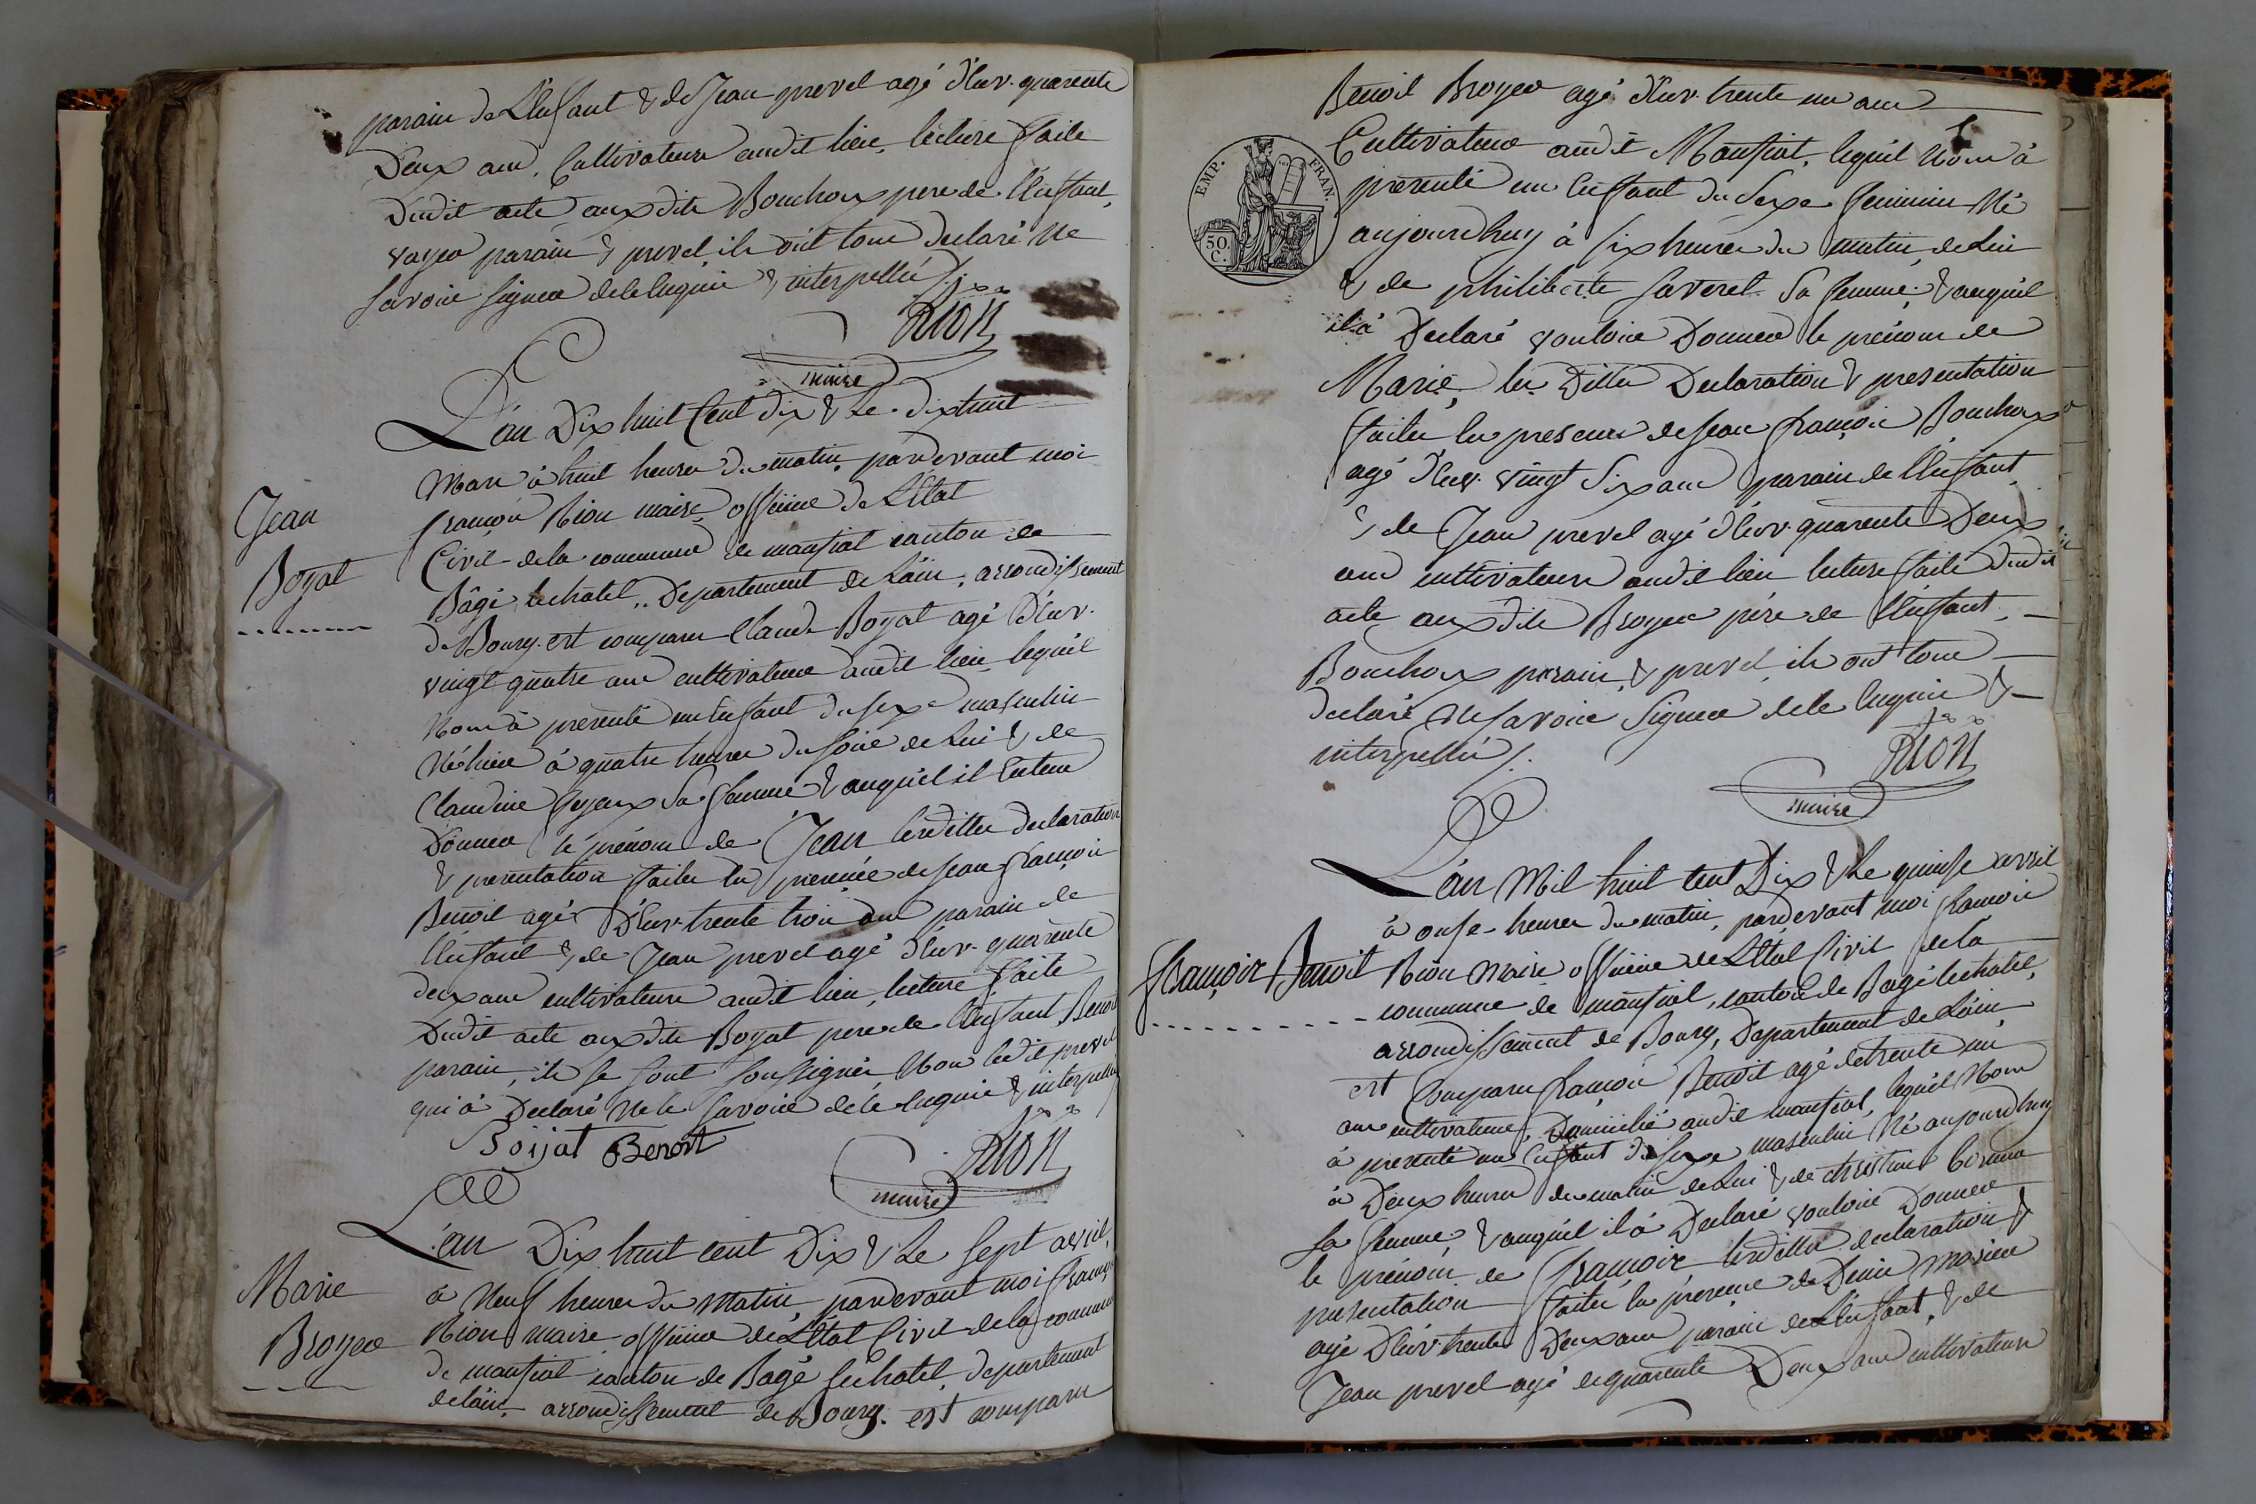 parain de L'enfant & de Jean prevel agé d'Env. quarente
Deux ans, Cultivateurs audit lieu, lecture faite
Dudit acte auxdits Bouchoux pere de l'enfant,
parain & prevel ils ont tous declaré Ne
Savoir signer de ce Enquis & interpellés /.
Rion
maire
L'an Dix huit Cent dix & Le dixhuit
Jean
Boyat
Mars à huit heures du matin, pardevant moi
françois Rion maire officier de L'Etat
Civil de la commune de mansiat canton de
Bâgé lechatel, Departement de L'ain, arrondissement
de Bourg est comparu Claude Boyat agé d'Env.
vingt quatre ans cultivateur audit lieu lequel
Nous à presenté un Enfant du sexe masculin
Né hier à quatre heures du soir de Lui & de
Claudine sa femme & auquel il Entend
Donner le prénom de Jean lesdittes declaration
& presentation faites En presence de Jean françois
Benoit agé d'Env. trente trois ans parain de
l'Enfant & de Jean prevel agé d'Env. quarente
deux ans cultivateurs audit lieu, lecture faite
Dudit acte auxdits Boyat pere de l'enfant Benoit
parain, ils se sont soussignés, Non ledit prevel
qui à Declaré Ne le savoir de ce Enquis & interpellé
Boijat Benoit
Rion
maire
L'an Dix huit cent Dix & Le sept avril,
Marie
Broyer
à Neuf heures du Matin, pardevant moi françois
Rion maire officier de L'Etat Civil de la commune
de mansiat canton de Bagé lechatel, departement
de L'ain, arrondissement de Bourg. est comparu
Benoit Broyer agé d'Env. trente un ans
EMP. FRAN.
50. C.
Cultivateur audit Mansiat, lequel Nous à
presenté un Enfant du Sexe feminin Né
aujourdhuy à six heures du matin, de Lui
& de philiberte Saverel Sa femme, & auquel
il à Declaré vouloir Donner le prénom de
Marie, les Dittes Declaration & presentation
faites En presence de Jean françois Bouchoux
agé d'Env. vingt Six ans parain de l'Enfant
& de Jean prevel agé d'Env. quarente Deux
ans cultivateurs audit lieu lecture faite dudit
acte auxdits Broyer père de l'Enfant,
Bouchoux parain, & prevel, ils ont tous
declaré Ne savoir Signer de ce Enquis &
interpellés /.
Rion
maire
L'an Mil huit cent Dix & Le quinse avril
à onse heures du matin, pardevant moi françois
françois Benoit
Rion Maire officier de L'Etat Civil de la
commune de mansiat, canton de Bagé lechatel,
arrondissement de Bourg, Departement de L'ain,
est Comparu françois Benoit agé de trente un
ans cultivateur, Domicilié audit mansiat, lequel Nous
à presenté un Enfant du Sexe masculin Né aujourdhuy
à Deux heures du matin de Lui & de christine
Sa femme & auquel il à Declaré vouloir Donner
le prénom de françois lesdittes declaration &
presentation faites En presence de Denis Mosier
agé D'Env. trente Deux ans parain de L'Enfant, & de
Jean prevel agé de quarente Deux ans cultivateurs